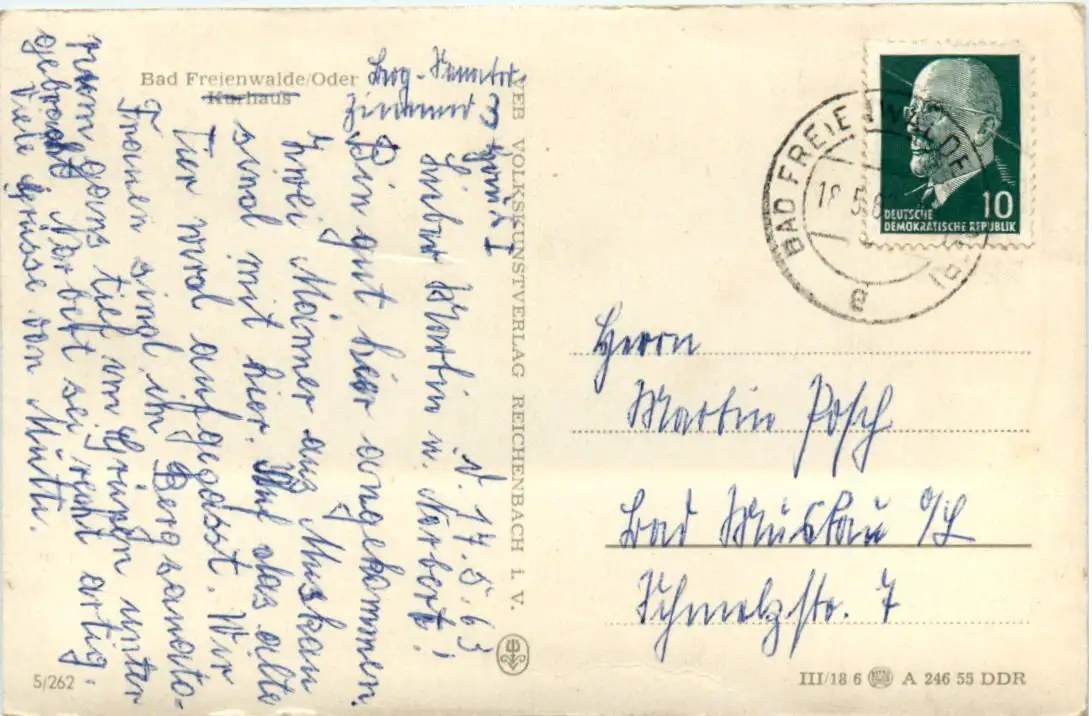 Bad Freienwalde/Oder
Kurhaus
Berg-Sanator.
Zimmer 3
Haus I
d. 17.5.63
Lieber Martin u. Norbert!
Bin gut hier angekommen
Zwei Männer aus Muskau
sind mit hier. Auf das alte
Tier wird aufgepasst. Wir
Frauen sind im Bergsanato-
rium ganz tief im Grünen unter
gebracht. Norbert sei recht artig.
Viele Grüsse von Mutti.
VEB VOLKSKUNSTVERLAG REICHENBACH i. V.
10
DEUTSCHE
DEMOKRATISCHE REPUBLIK
BAD FREIENWALDE
18.5.6
B
Herrn
Martin Posch
Bad Muskau O/L
Schmelzstr. 7
5/262
III/18 6 A 246 55 DDR